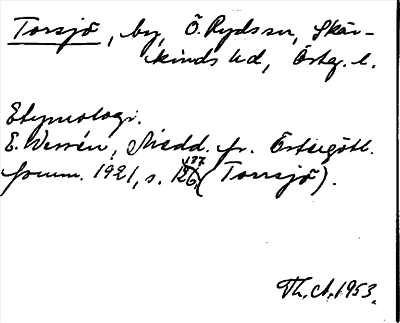 Torsjö, by, Ö. Ryds sn, Skär-
kinds hd, Östg. l.
Etymologi.
E. Wessén, Medd. fr. Östergötl.
fornm. 1921, s. 127 (Torrsjö).
Th. A. 1953.